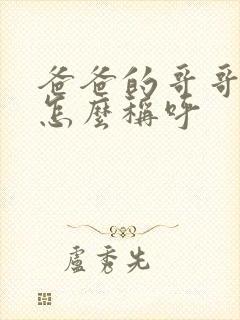 爸爸的哥哥
怎麼稱呼
盧秀先